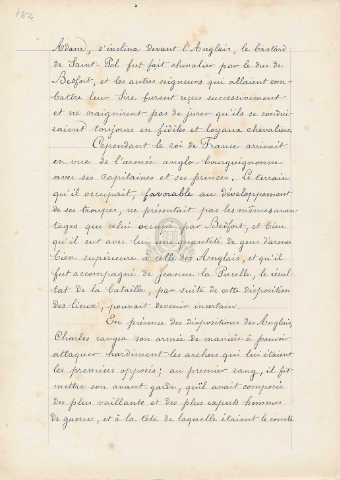 184
Adam, s'inclina devant l'Anglais, le bastard
de Saint-Pol fut fait chevalier par le duc de
Bedfort, et les autres seigneurs qui allaient com-
battre leur Sire furent reçus successivement
et ne craignirent pas de jurer qu'ils se condui-
saient toujours en fidèles et loyaux chevaliers.
Cependant le roi de France arrivait
en vue de l'armée anglo-bourguignonne
avec ses capitaines et ses princes. Le terrain
qu'il occupait, favorable au développement
de ses troupes, ne présentait pas les mêmes avan-
tages que celui occupé par Bedfort, et bien
qu'il eut avec lui une quantité de gens d'armes
bien supérieure à celle des Anglais, et qu'il
fut accompagné de Jeanne la Pucelle, le résul-
tat de la bataille, par suite de cette disposition
des lieux, pouvait devenir incertain.
En présence des dispositions des Anglais,
Charles rangea son armée de manière à pouvoir
attaquer hardiment les archers qui lui étaient
les premiers opposés; au premier rang, il fit
mettre son avant garde, qu'il avait composée
des plus vaillants et des plus experts hommes
de guerre, et à la tête de laquelle étaient le comte